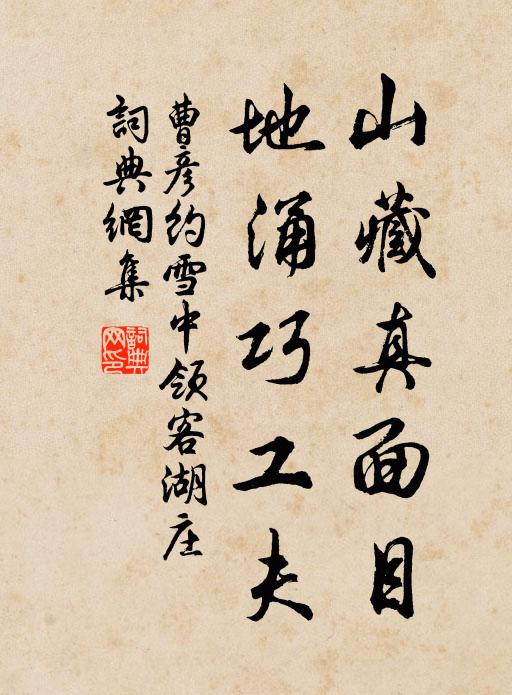 山藏真面目
地涌巧工夫
曹彦约雪中领客湖庄
詞典網集
詞典网印